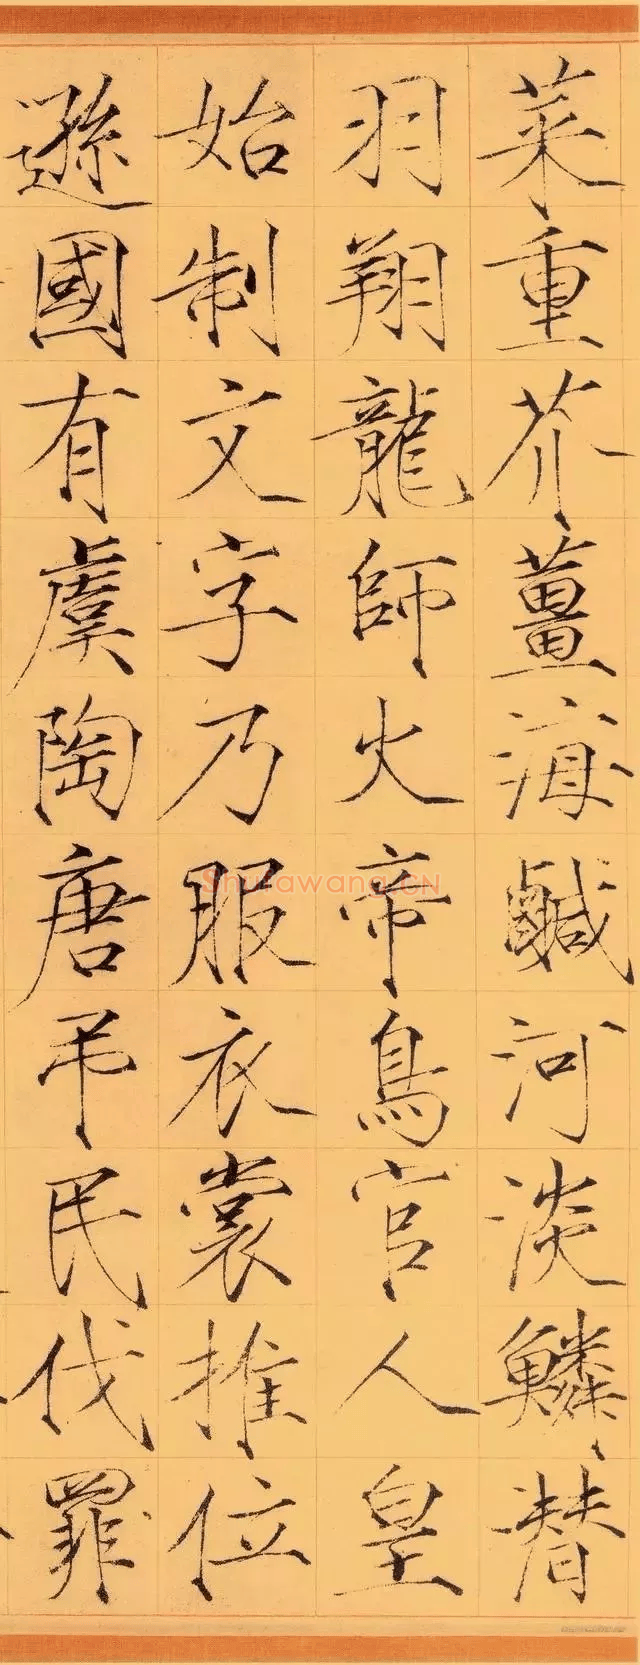 菜重芥薑海鹹河淡鱗潛
羽翔龍師火帝鳥官人皇
始制文字乃服衣裳推位
遜國有虞陶唐弔民伐罪
Shufawang.CN